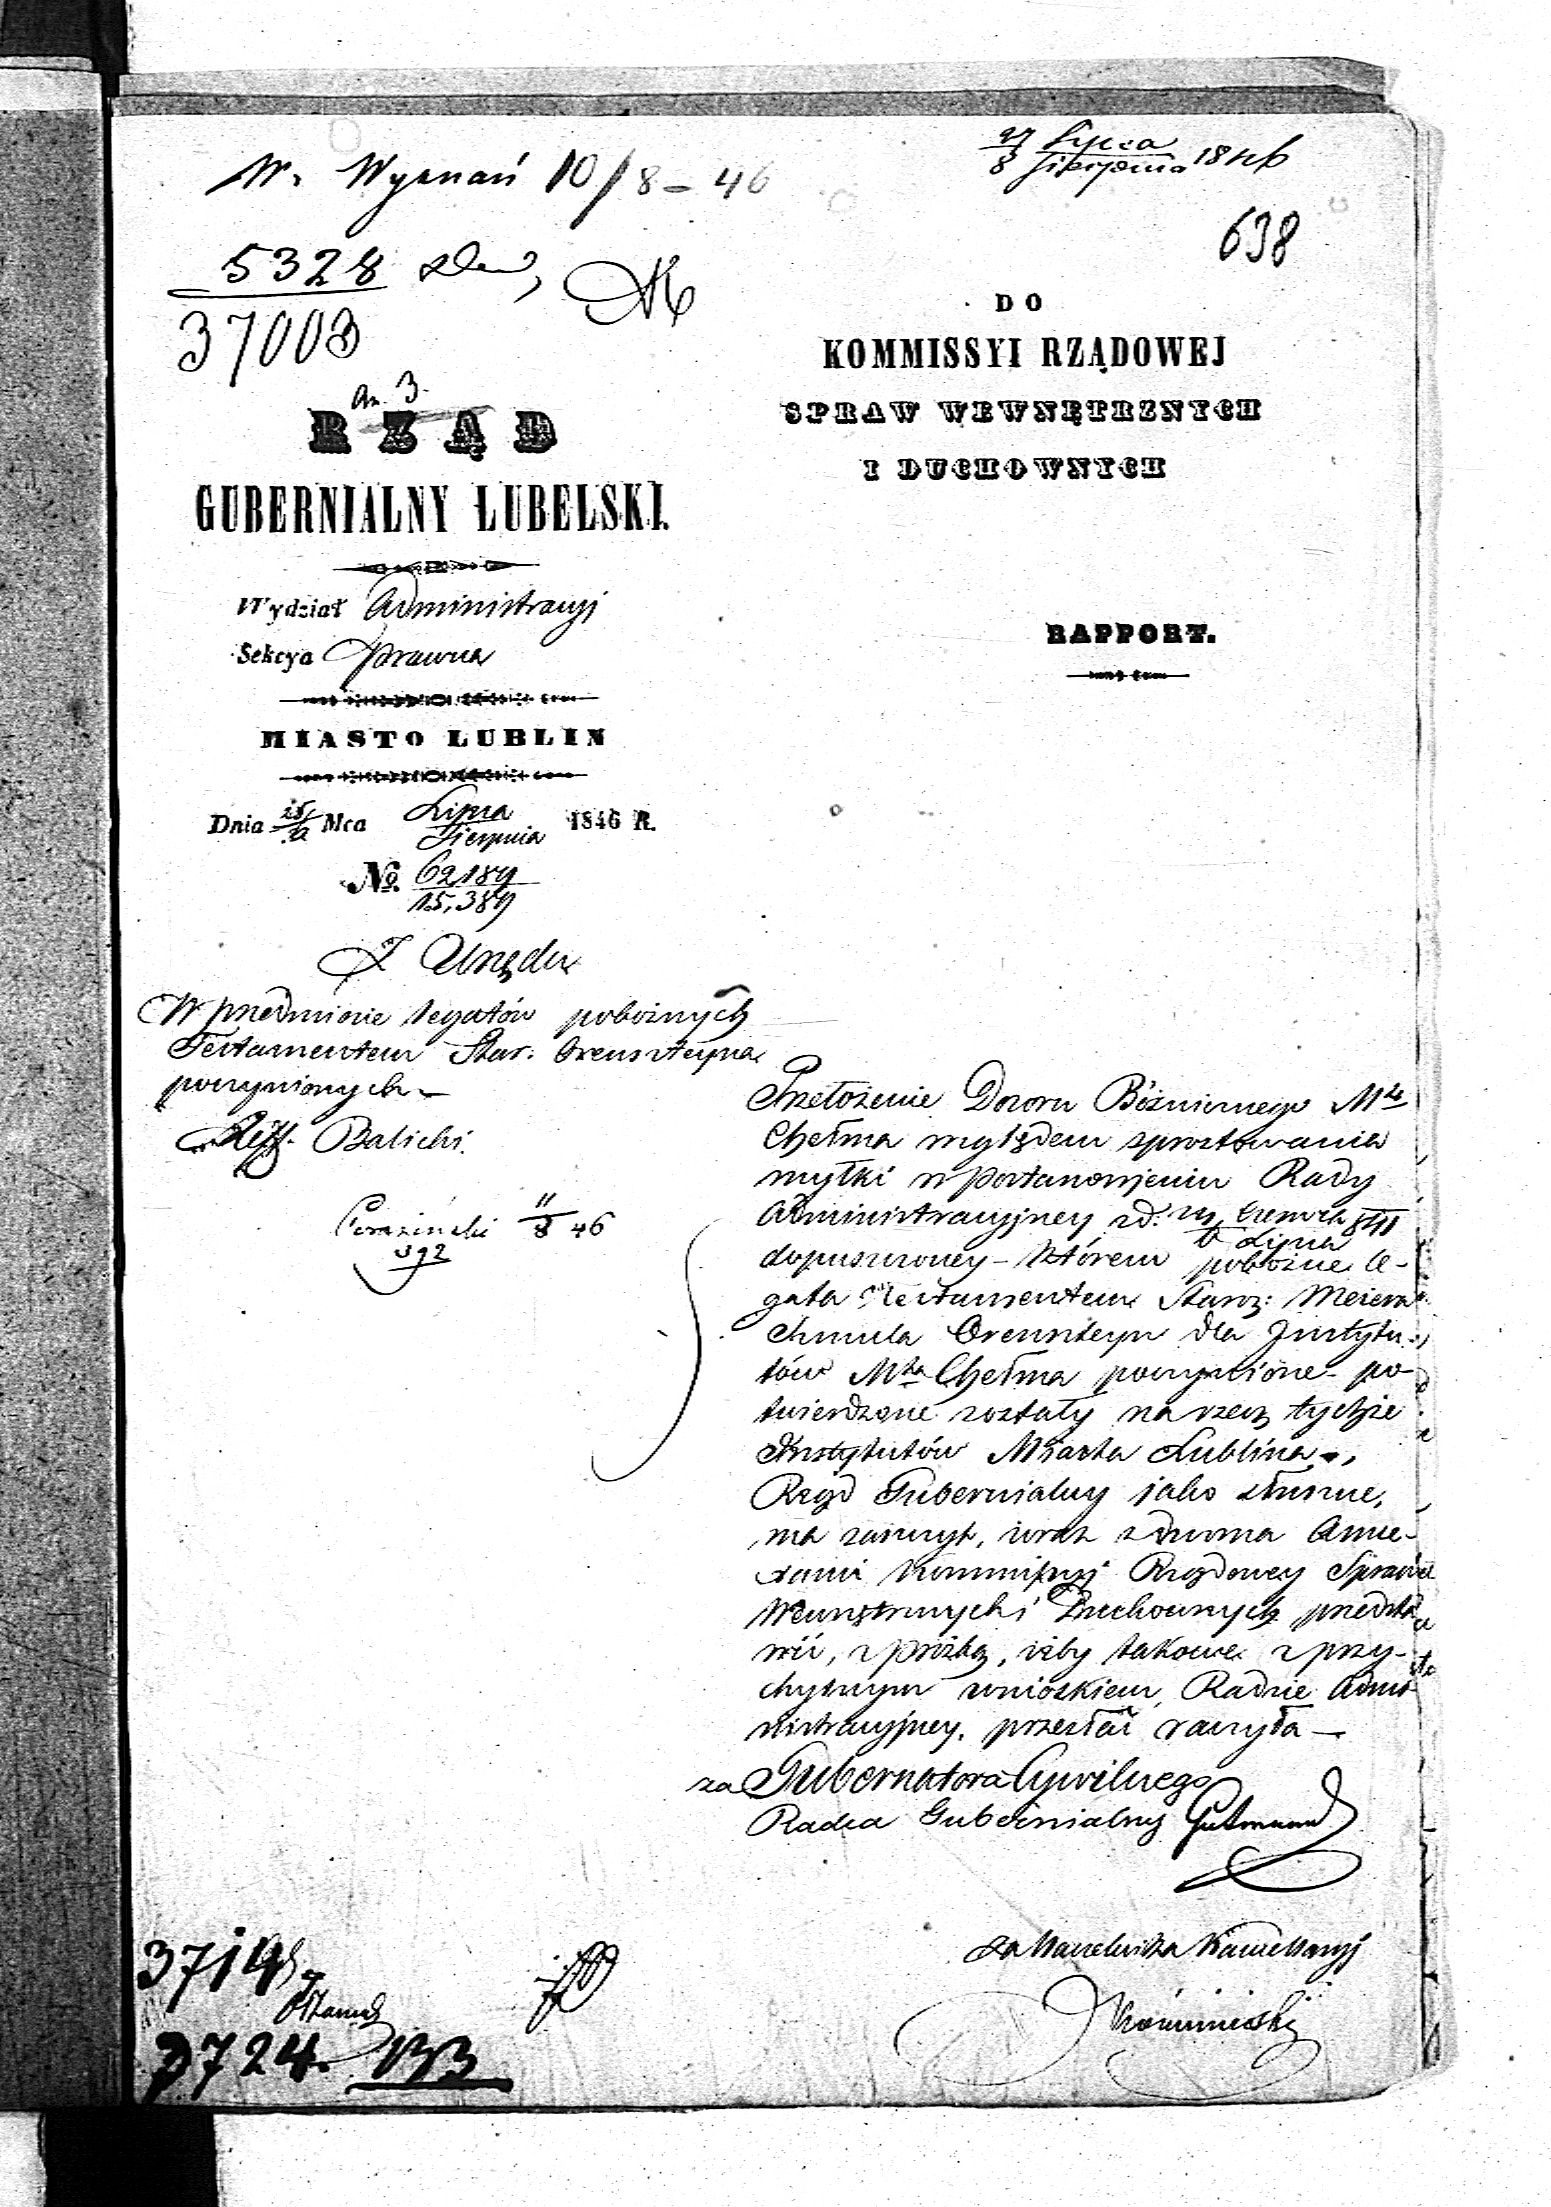 W. Wyznań 10/8 – 46
5328
37003
An. 3.
RZĄD
GUBERNIALNY LUBELSKI.
Wydział Administracyj
Sekcya Prawna
MIASTO LUBLIN
Dnia Mca Lipca
Sierpnia 1846 R.
No. 62189
15,389
Z Urzędu
W przedmiocie legatów pobożnych
Testamentem Star. Orensztejna
poczynionych –
Reff. Balicki.
11/8 46
392
27 Lipca
8 Sierpnia 1846
638
DO
KOMMISSYI RZĄDOWEJ
SPRAW WEWNĘTRZNYCH
I DUCHOWNYCH
RAPPORT.
Przełożenie Dozoru Bóźniczego Mta
Chełma względem sprostowania
myłki w postanowieniu Rady
Administracyjney zd. Czerwca
6 Lipca
dopuszczoney – którem pobożne le-
gata Testamentem Staroz: Meiera
Chmula Orensztejn dla Instytu-
tów Mta Chełma poczynione – po-
twierdzone zostały na rzecz tychże
Instytutów Miasta Lublina –,
Rząd Gubernialny jako słuszne,
ma zaszczyt, wraz z dwoma Anne-
xami Kommissyj Rządowey Spraw
Wewnętrznych i Duchownych przedsta
wić, z proźbą, iżby takowe z przy-
chylnym wnioskiem, Radzie Admi-
nistracyjney, przesłać raczyła –
za Gubernatora Cywilnego
Radca Gubernialny Gutmann
za Naczelnika Kancellaryj
3724. 133